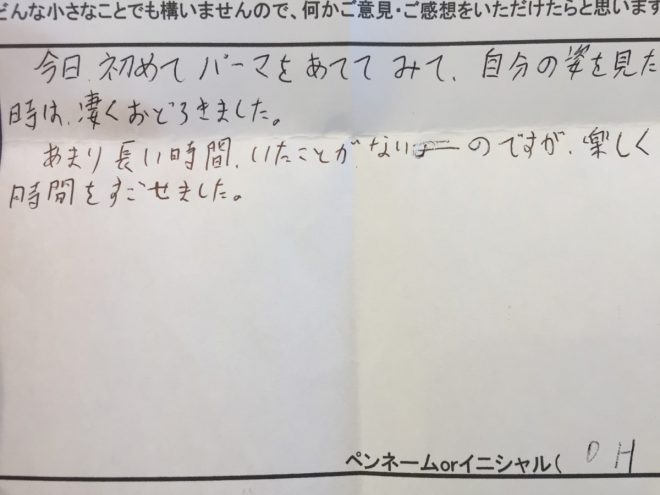 どんな小さなことでも構いませんので、何かご意見・ご感想をいただけたらと思います
今日、初めてパーマをあててみて、自分の姿を見た
時は、凄くおどろきました。
あまり長い時間、いたことがないのですが、楽しく
時間をすごせました。
ペンネームorイニシャル( O H